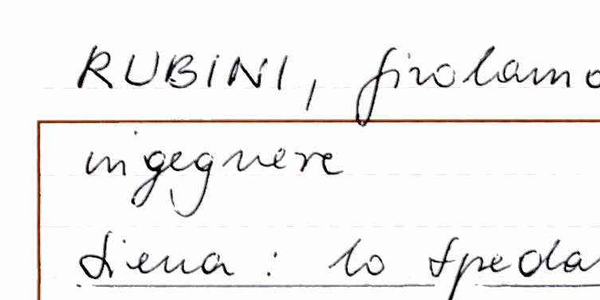 RUBINI, Girolamo
ingegnere
Siena: lo Speda